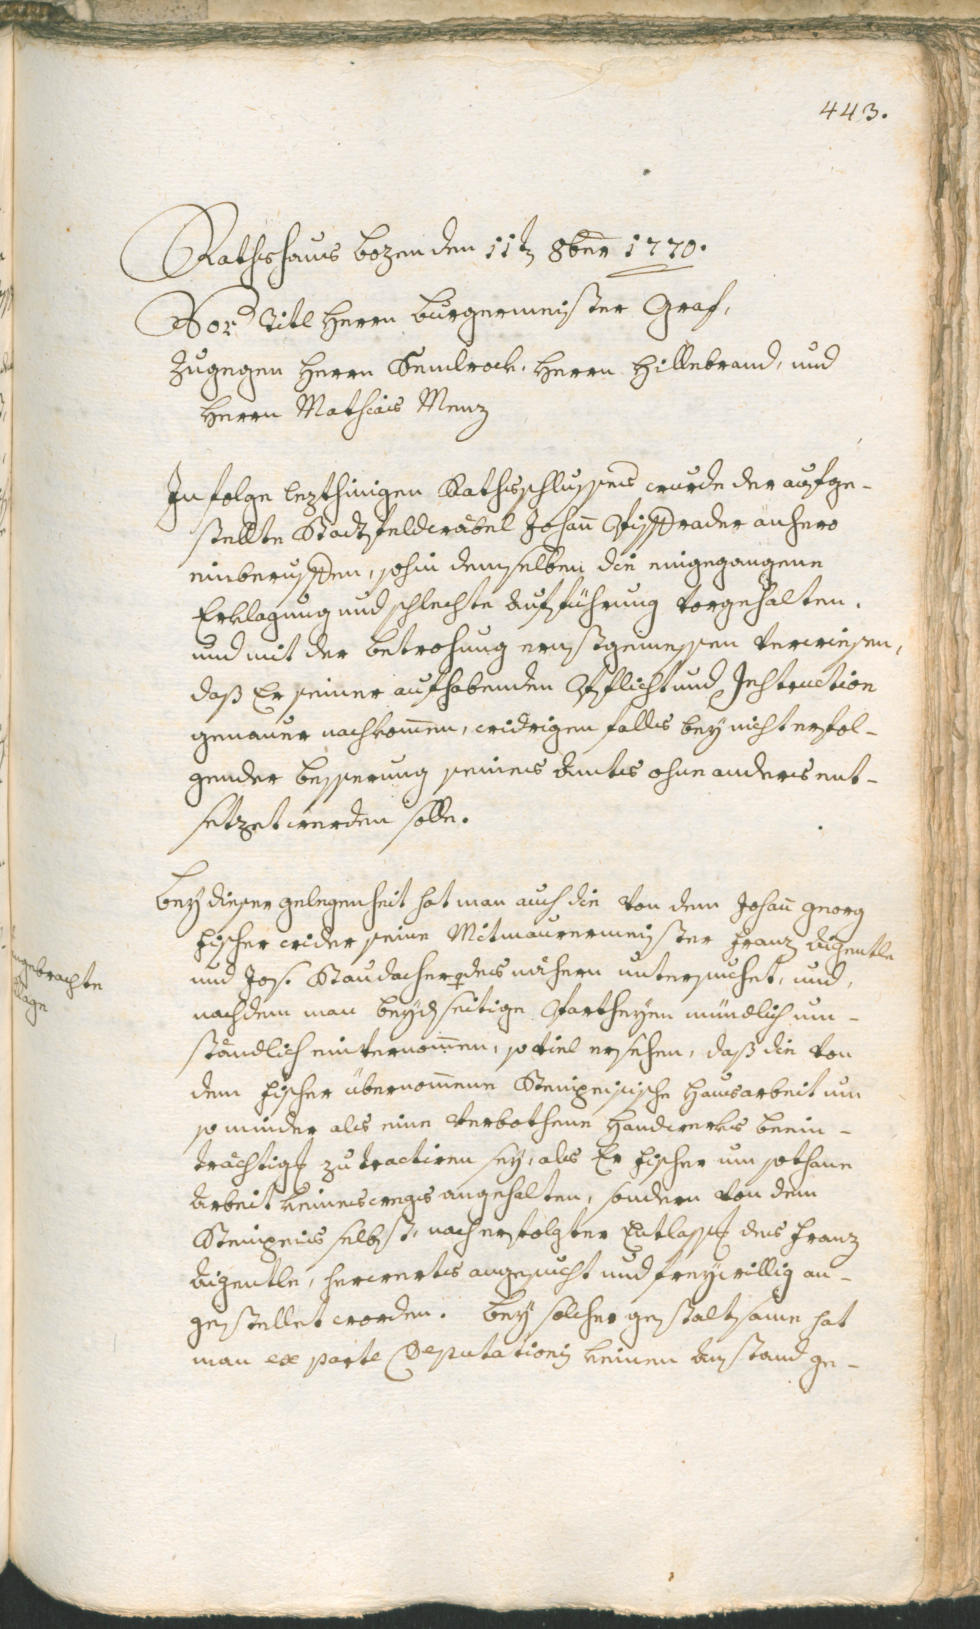 443.
Rathshaus Bozen den 11t 8ber 1770.
Vor Titl Herrn Burgermeister Graf,
Zugegen Herrn Kemlrock, Herrn Hillebrand, und
Herrn Mathias Menz
In folge lezthinigen Rathsschlusses wurde der aufge-
stellte Stadtfeldwäbel Johañ anhero
einberuffen, sohin demselben die eingegangene
Erklagung und schlechte Aufführung vorgehalten,
und mit der Betrohung ernstgemessen verwiesen,
daß Er seiner aufhabenden Pflicht und Instruction
genauer nachkom̄en, widrigen falls bey nicht erfol-
gender Besserung seines Amtes ohne anders ent-
setzet werden solle.
Bey dieser gelegenheit hat man auch die von dem Johañ Georg
Fischer wider seine Mitmaurermeister Franz Aigentle
und Jos. Staudacher des nähern untersuchet, und,
angebrachte
Klage
nachdem man beydseitige Partheyen mündlich um-
ständlich einvernom̄en, so viel ersehen, daß die von
dem Fischer übernom̄ene Hausarbeit um
so minder als eine verbothene Handwerks beein-
trächtigg zu tractiren sey, als Er Fischer um sothane
Arbeit keineswegs angehalten, sondern von dem
selbst, nach erfolgter Entlassg des Franz
Aigentle, herwerts angesucht und freywillig an-
gestellet worden. Bey solcher gestaltsame hat
man ex parte Deputationis keinen Anstand ge-